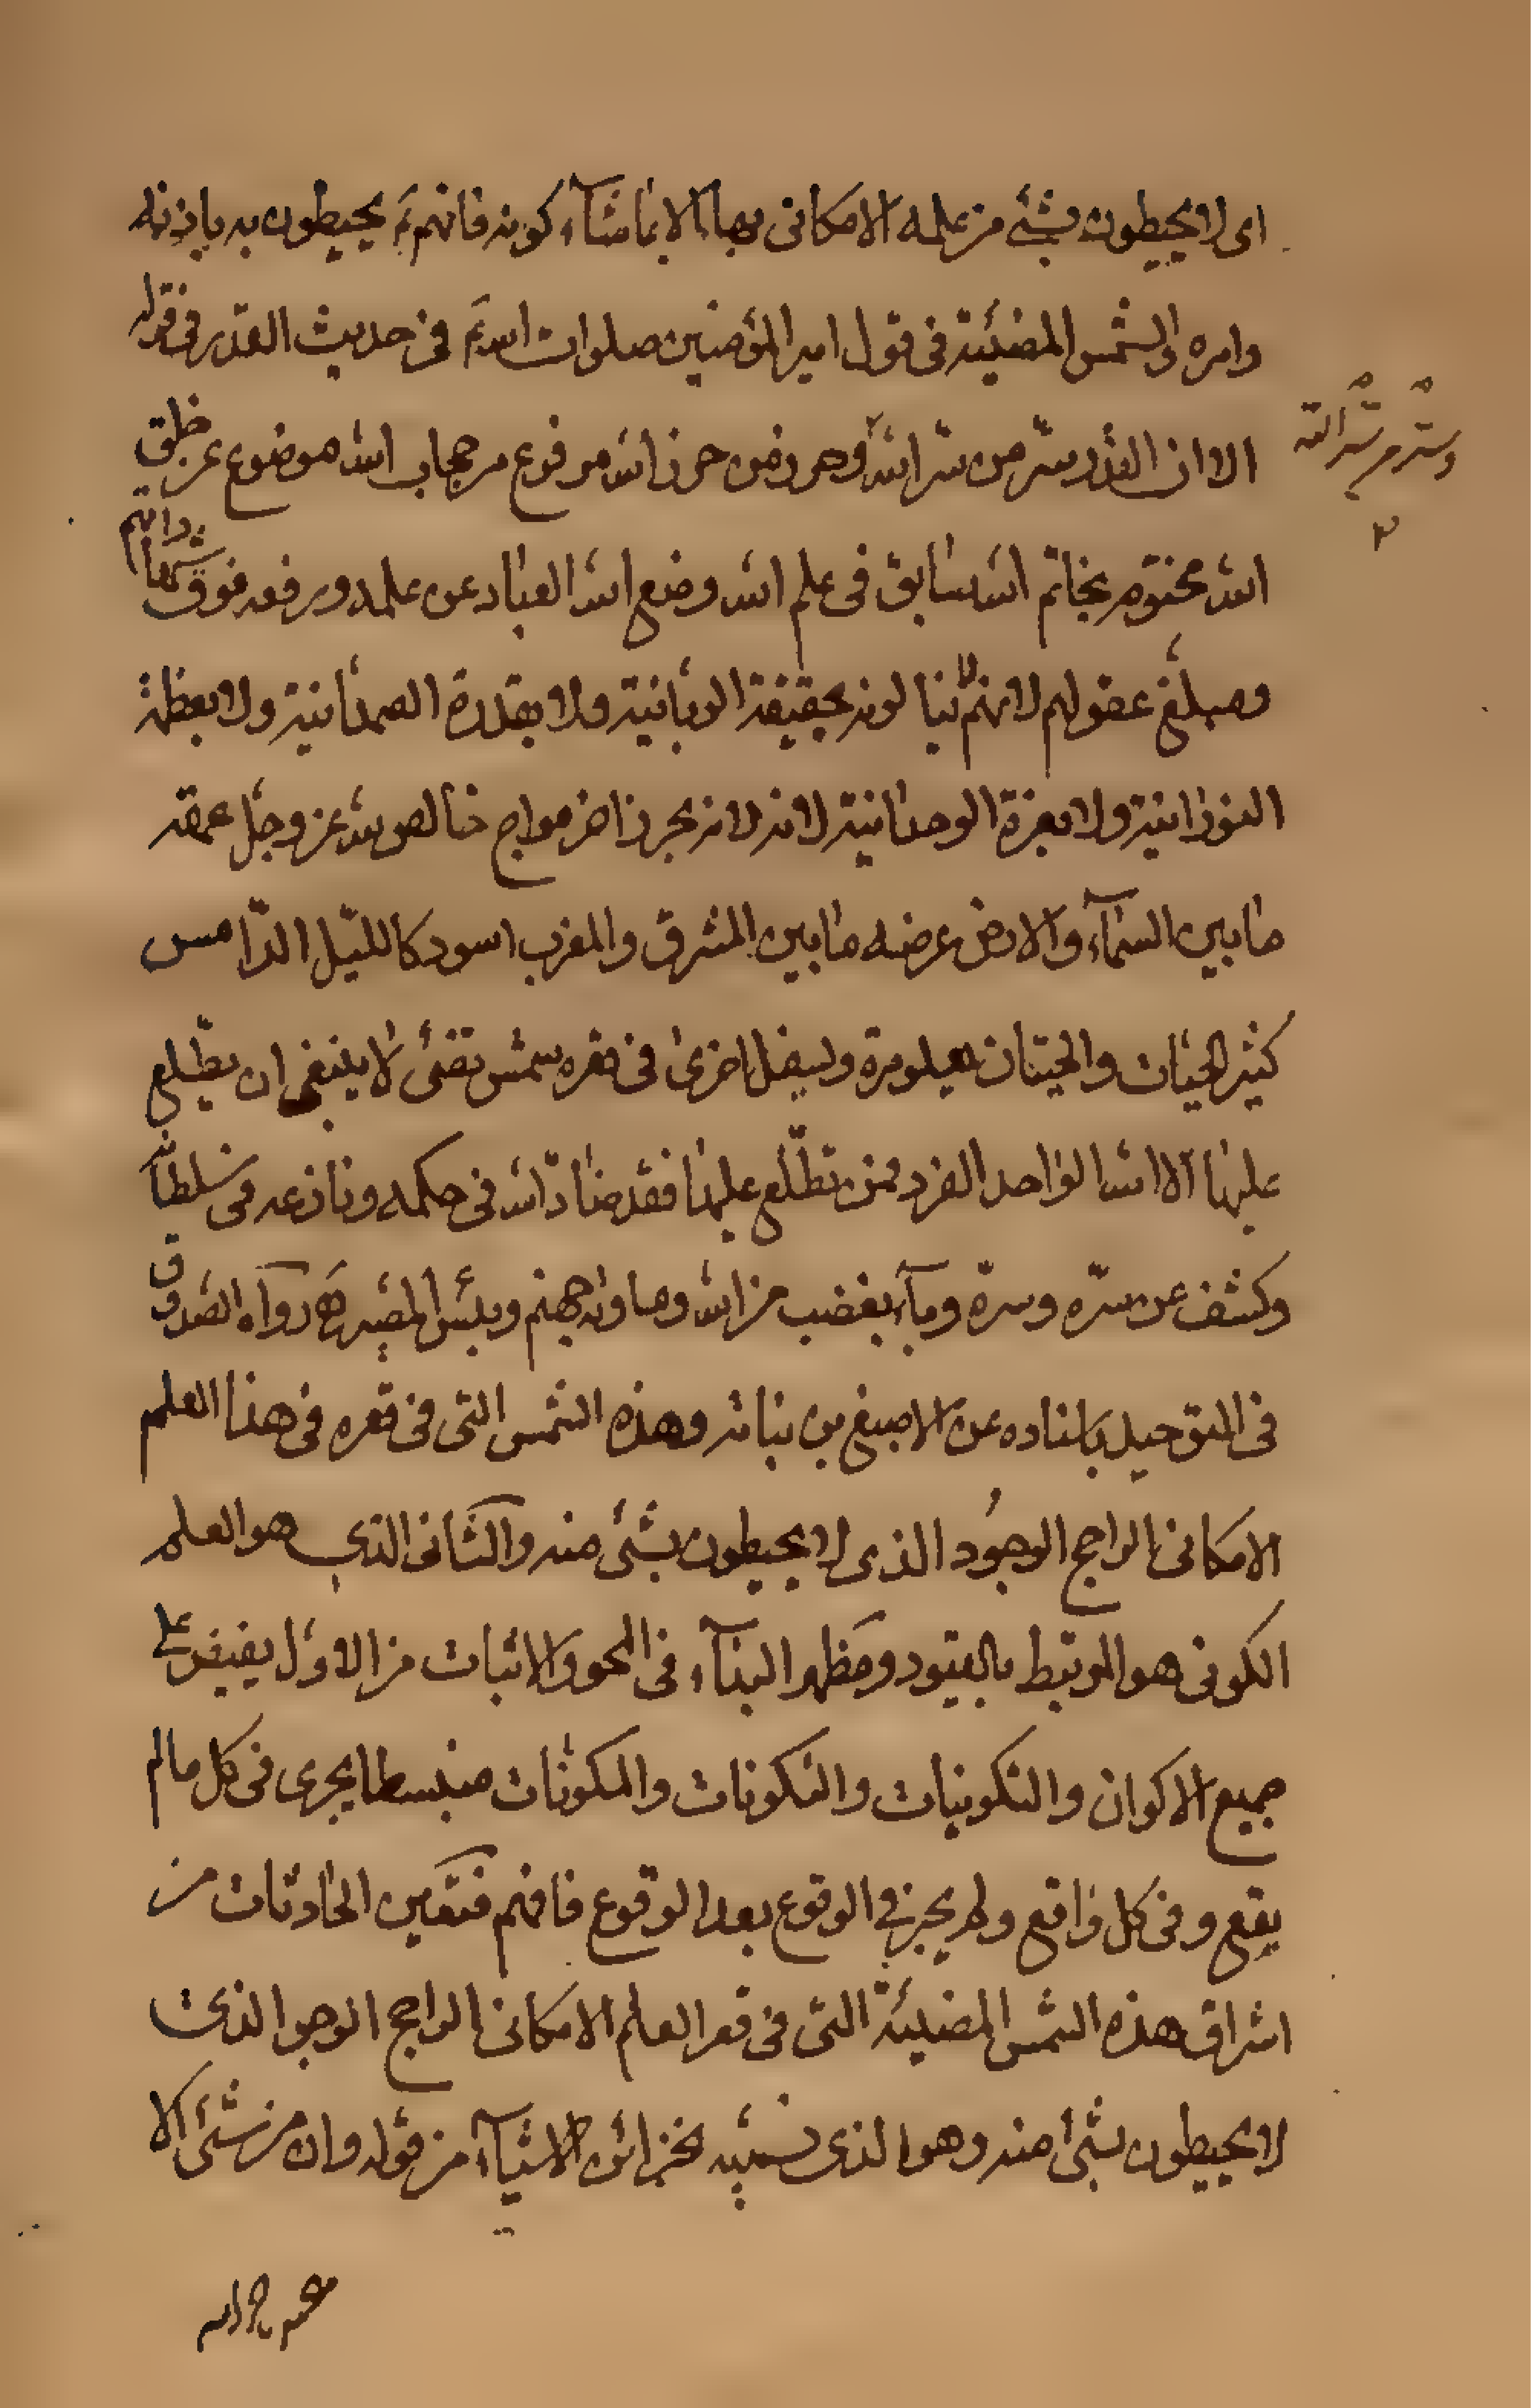 اى لا يحيطون بشئ من علمه الامكانى بها الا بما شآء كونه فانهم يحيطون به باذنه
وامره والشمس المضيئة فى قول امير المؤمنين صلوات الله فى حديث القدر فى قوله
الا ان القدر سرّ من سرّ الله وحرز من حرز الله مرفوع من حجاب الله موضوع عن خلق
وستر من ستر الله
الله مختوم بخاتم الله سابق فى علم الله وضع الله العباد عن علمه ورفعه فوق شهاداتهم
ومبلغ عقولهم لانهم لا ينالونه بحقيقة الربانية ولا بقدرة الصمدانية ولا بعظمة
النورانية ولا بعزة الوحدانية لانه لانه بحر زاخر مواج خالص لله عز وجل عمقه
ما بين السمآء والارض عرضه ما بين المشرق والمغرب اسود كالليل الدّامس
كثير الحيات والحيتان يعلو مرة ويسفل اخرى فى قعره شمس تضئ لا ينبغى ان يطّلع
عليها الا الله الواحد الفرد فمن تطلّع عليها فقد ضادّ الله فى حكمه ونازعه فى سلطانه
وكشف عن سرّه وسرّه وبآء بغضب من الله وماويه جهنم وبئس المصير رواه الصدوق
فى التوحيد باسناده عن الاصبغ بن نباته وهذه الشمس التى فى قعره فى هذا العلم
الامكانى الراجح الوجود الذى لا يحيطون بشئ منه والثانى الذى هو العلم
الكونى هو المرتبط بالقيود ومظهر البدآء فى المحو والاثبات من الاول يفيض على
جميع الاكوان والتكوينات والتكونات والمكونات منبسطا يجرى فى كل ما لم
يقع وفى كل واقع ولم يجز فى الوقوع بعد الوقوع فافهم فتعين الحادثات من
اشراق هذه الشمس المضيئة التى فى قعر العلم الامكانى الراجح الوجو الذى
لا يحيطون بشئ منه وهو الذى نسميه بخزائن الاشيآء من قوله وان من شئ الا